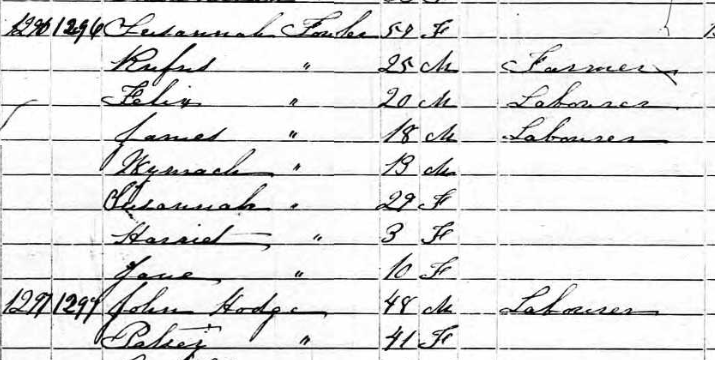 1296 1296 Susannah Fowler 54 F
Rufus " 25 M Farmer
Felix " 20 M Labourer
James " 18 M Labourer
" 13 M
Susannah " 29 F
Harriet " 3 F
Jane " 10 F
1297 1297 John Hodge 48 M Labourer
Patsey " 41 F